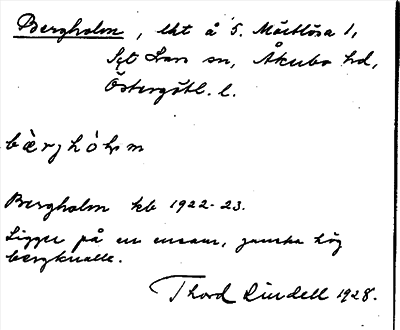 Bergholm, lht å S. Mörtlösa 1,
Skt Lars sn, Åkerbo hd,
Östergötl. l.
bærjhòlm
Bergholm kb 1922-23.
Ligger på en ensam, ganska hög
bergknalle.
Thord Lindell 1928.